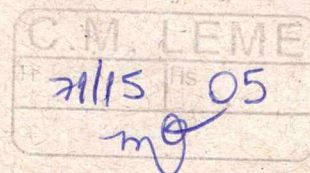 C.M. LEME
71/15 Fls 05